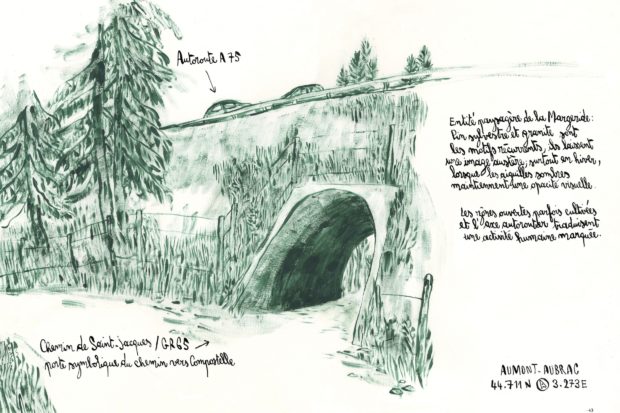 Autoroute A75
Entité paysagère de la Margeride:
Pin sylvestre et granite sont
les motifs récurrents, ils laissent
une image austère, surtout en hiver,
lorsque les aiguilles sombres
maintiennent une opacité visuelle.
Les rares ouvertes parfois cultivées
et l'axe autoroutier traduisent
une activité humaine marquée.
Chemin de Saint-Jacques / GR65
porte symbolique du chemin vers Compostelle
AUMONT-AUBRAC
44.711 N 3.273 E